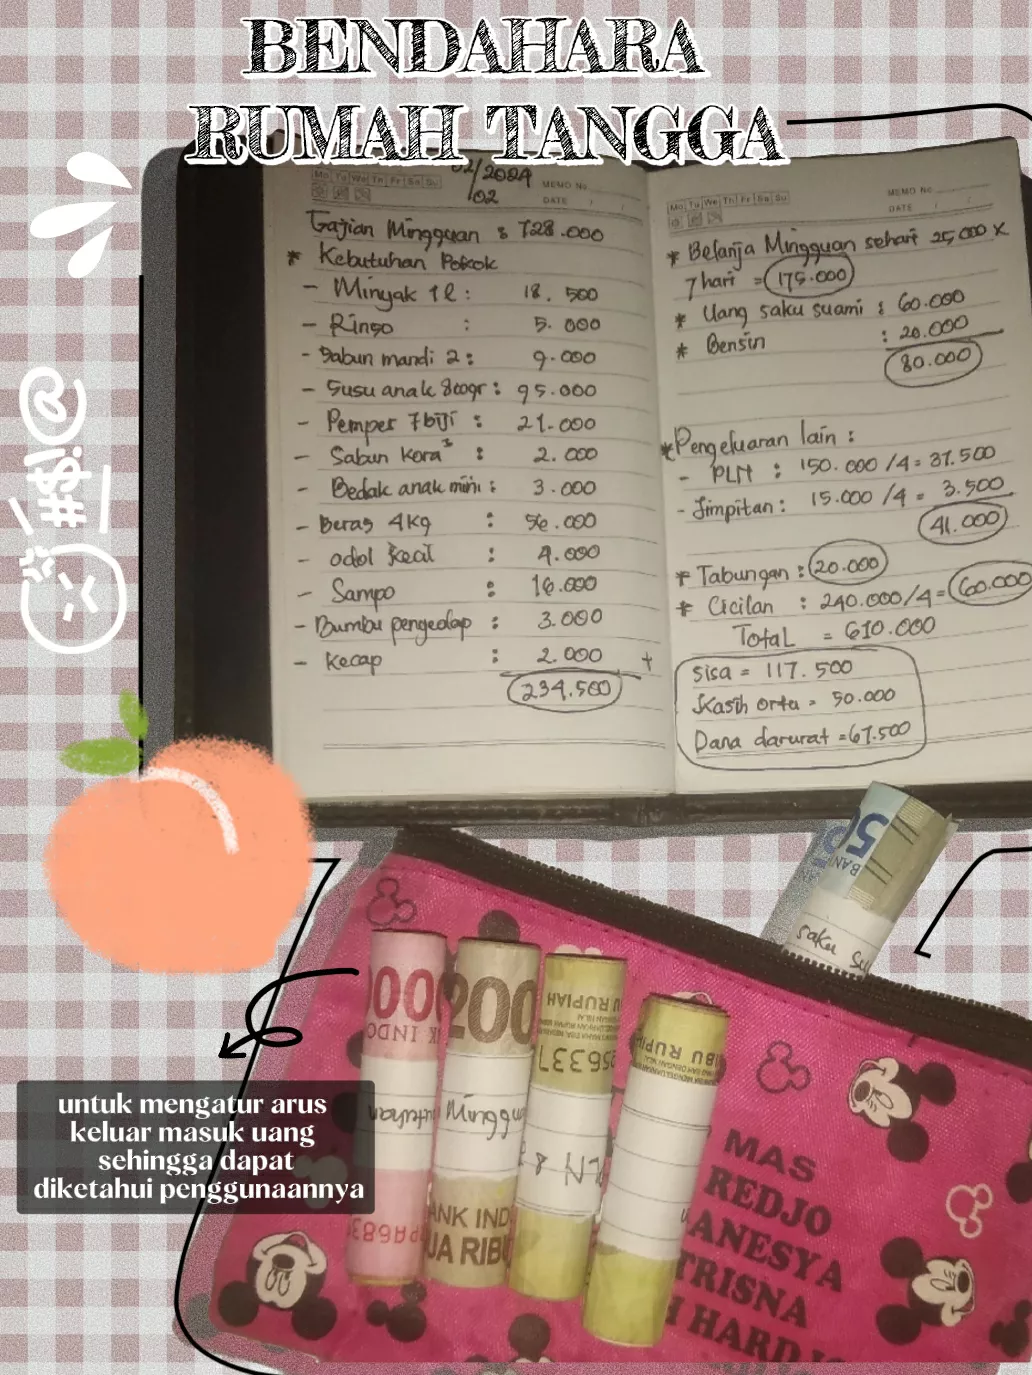 BENDAHARA
RUMAH TANGGA
Mo Tu We Th Fr Sa Su
02/2024
/02
MEMO No.
DATE / /
Gajian Mingguan : 728.000
* Kebutuhan Pokok
- Minyak 1l : 18.500
- Rinso : 5.000
- Sabun mandi 2 : 9.000
- Susu anak 800gr : 95.000
- Pemper 7 biji : 21.000
- Sabun Kora² : 2.000
- Bedak anak mini : 3.000
- Beras 4 Kg : 56.000
- odol kecil : 4.000
- Sampo : 16.000
- Bumbu pengedap : 3.000
- Kecap : 2.000 +
234.500
Mo Tu We Th Fr Sa Su
MEMO No.
DATE / /
* Belanja Mingguan sehari 25.000 X
7 hari = 175.000
* Uang saku suami : 60.000
* Bensin : 20.000
80.000
* Pengeluaran lain :
- PLN : 150.000 /4 = 37.500
- Jimpitan : 15.000 /4 = 3.500
41.000
* Tabungan : 20.000
* Cicilan : 240.000/4 = 60.000
Total = 610.000
Sisa = 117.500
Kasih ortu = 50.000
Dana darurat = 67.500
@!$##
50
BANK
saku su
000
K INDO
200
Minggu
ANK IND
UA RIBU
U RUPIAH
256337
LN 8
IBU RUPIA
untuk mengatur arus
keluar masuk uang
sehingga dapat
diketahui penggunaannya
MAS
REDJO
ANESYA
TRISNA
HARDJ